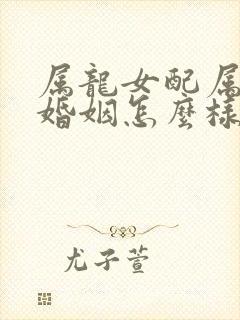 属龍女配属
婚姻怎麼樣
尤子萱